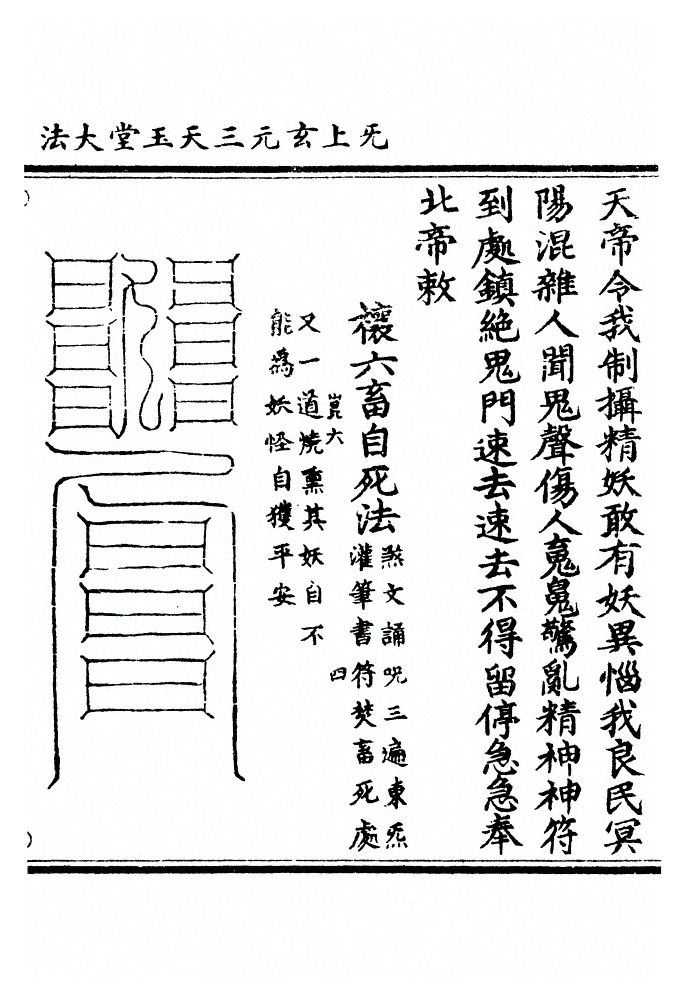 旡上玄元三天玉堂大法
天帝令我制攝精妖敢有妖異惱我良民冥
陽混雜人聞鬼聲傷人䰟魄驚亂精神神符
到處鎮絕鬼門速去速去不得留停急急奉
北帝敕
禳六畜自死法
煞文誦呪三遍東炁
灌筆書符焚畜死處
崑六
四
又一道燒熏其妖自不
能爲妖怪自獲平安